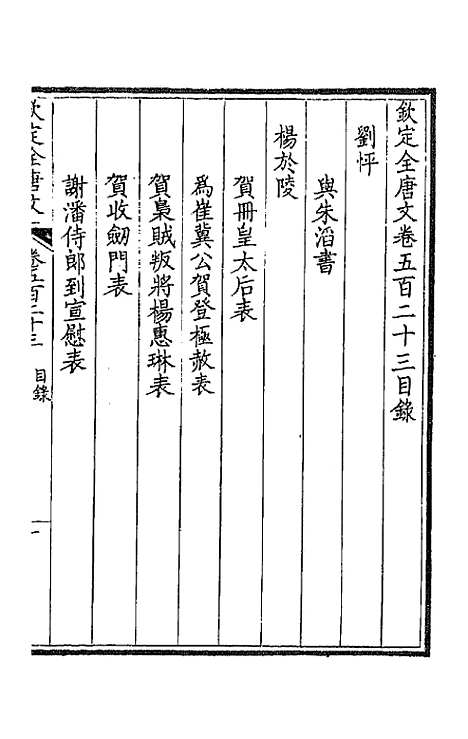 欽定全唐文卷五百二十三目錄
劉怦
與朱滔書
楊於陵
賀冊皇太后表
爲崔冀公賀登極赦表
賀梟賊叛將楊惠琳表
賀收劒門表
謝潘侍郎到宣慰表
欽定全唐文
卷五百二十三
目錄
一